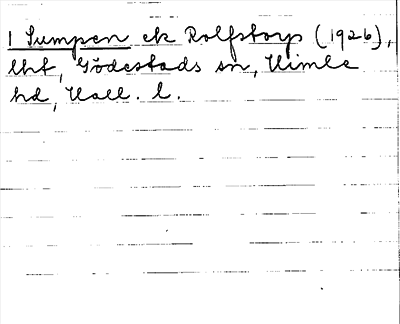 I Sumpen ek Rolfstorp (1926),
lht, Gödestads sn, Himle
hd, Hall. l.